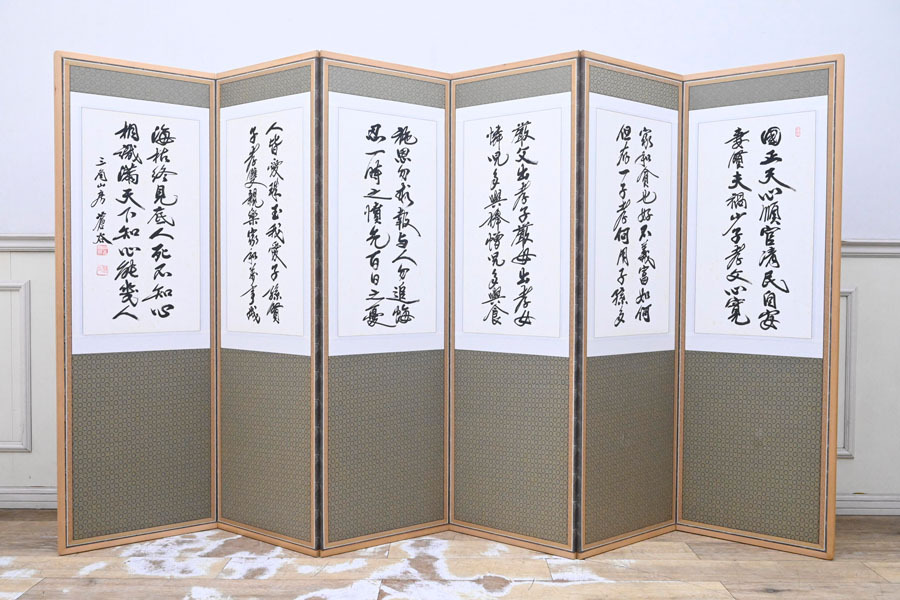 國正天心順官清民自安
妻賢夫禍少子孝父心寬
家和貧也好不義富如何
但存一子孝何用子孫多
嚴父出孝子嚴母出孝女
憐兒多與棒憎兒多與食
施恩勿求報与人勿追悔
忍一時之憤免百日之憂
人皆愛珠玉我愛子孫賢
子孝雙親樂家和萬事成
海枯終見底人死不知心
相識滿天下知心能幾人
三角山房